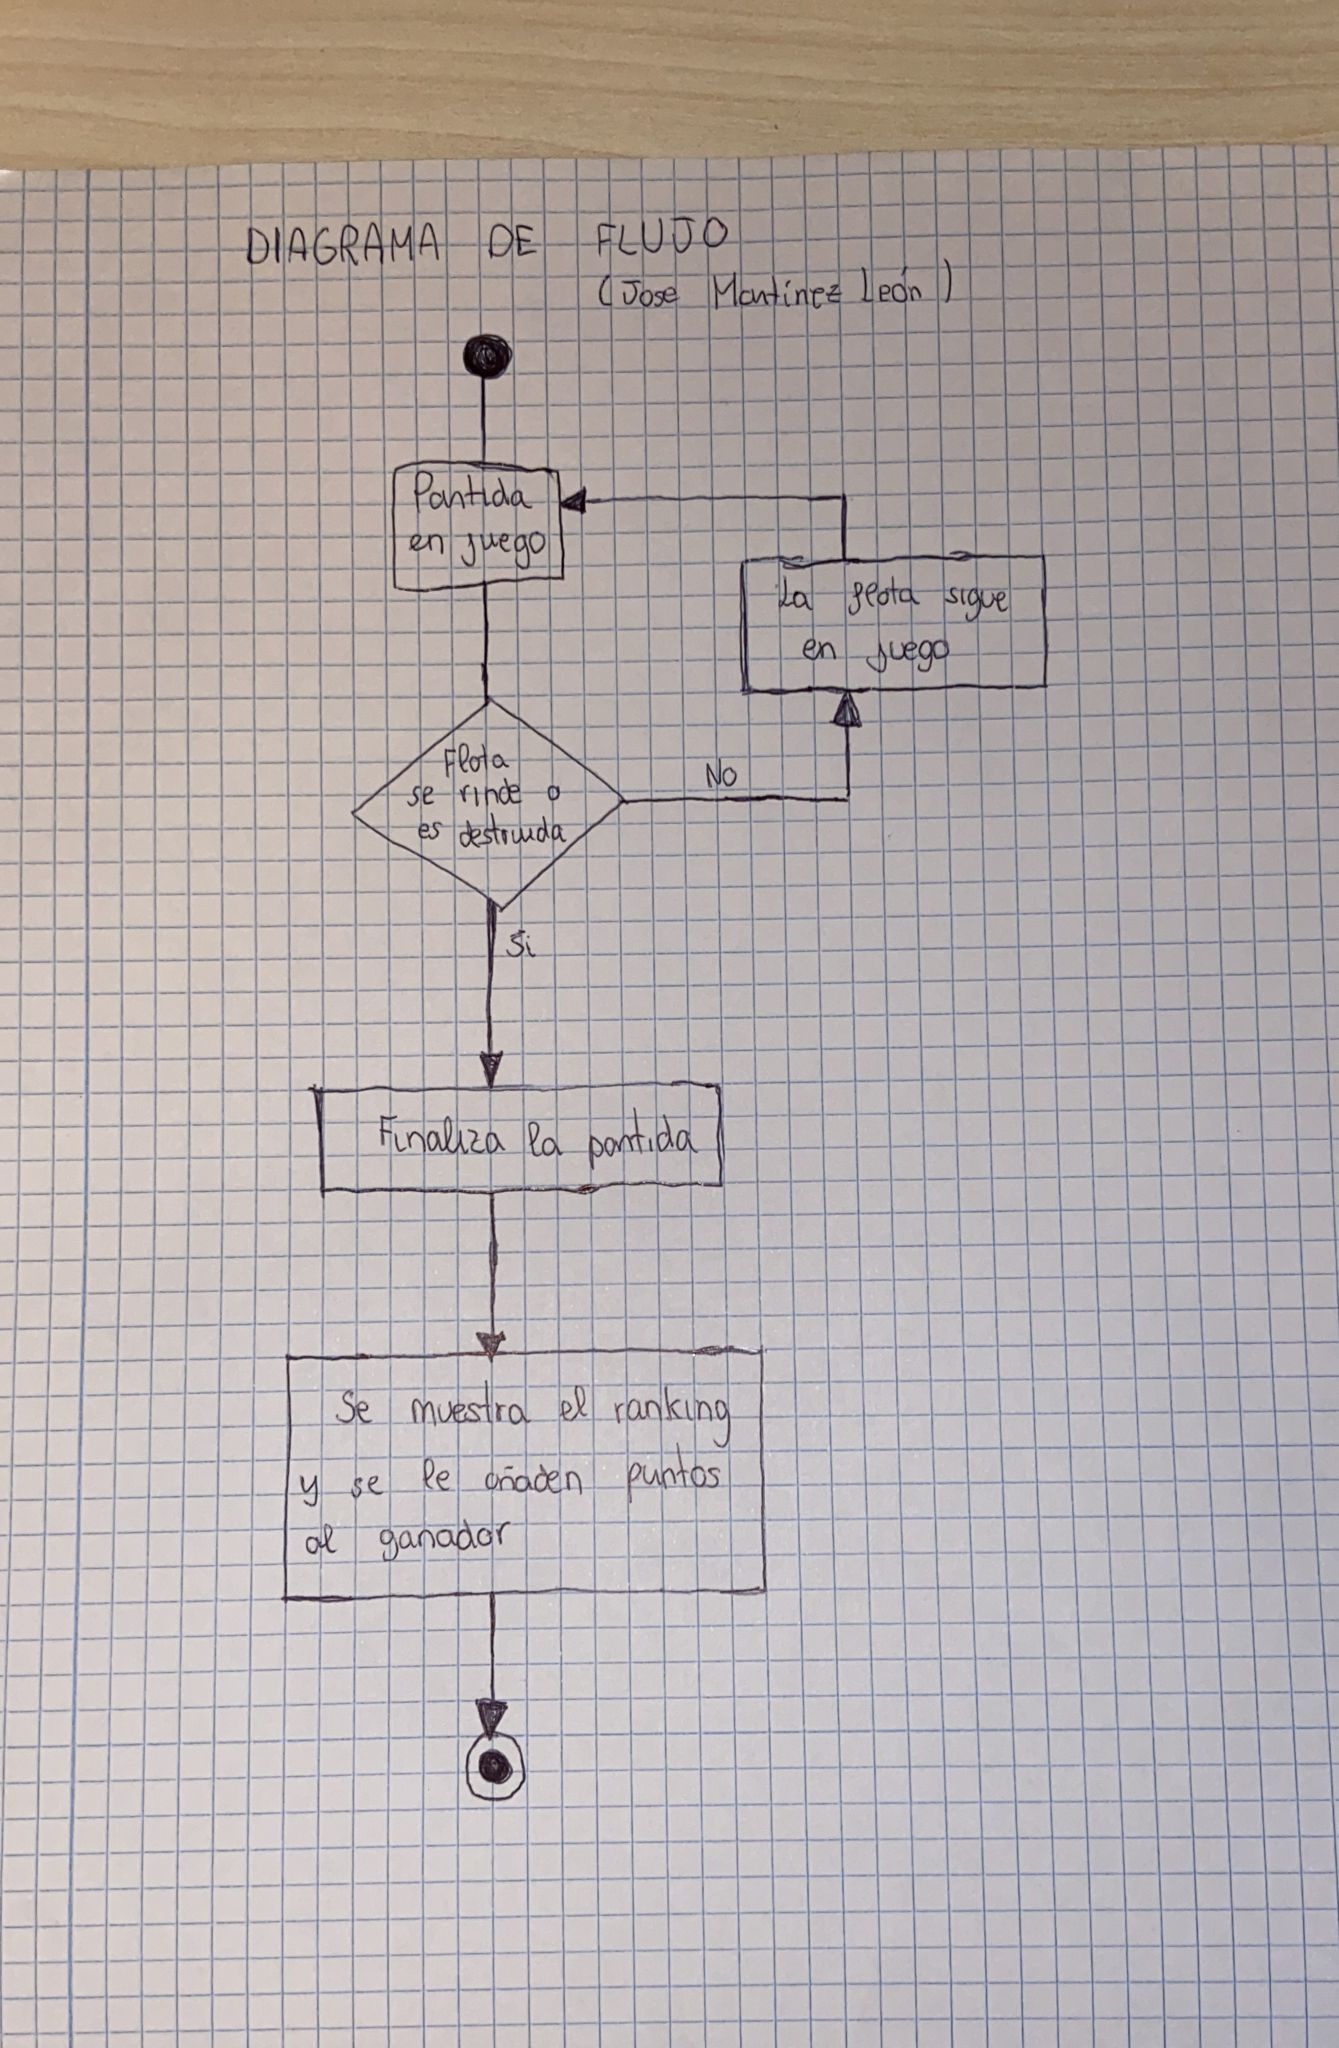 DIAGRAMA DE FLUJO
(Jose Martínez León)
Partida
en juego
La flota sigue
en juego
Flota
se rinde o
es destruida
No
Si
Finaliza la partida
Se muestra el ranking
y se le añaden puntos
al ganador